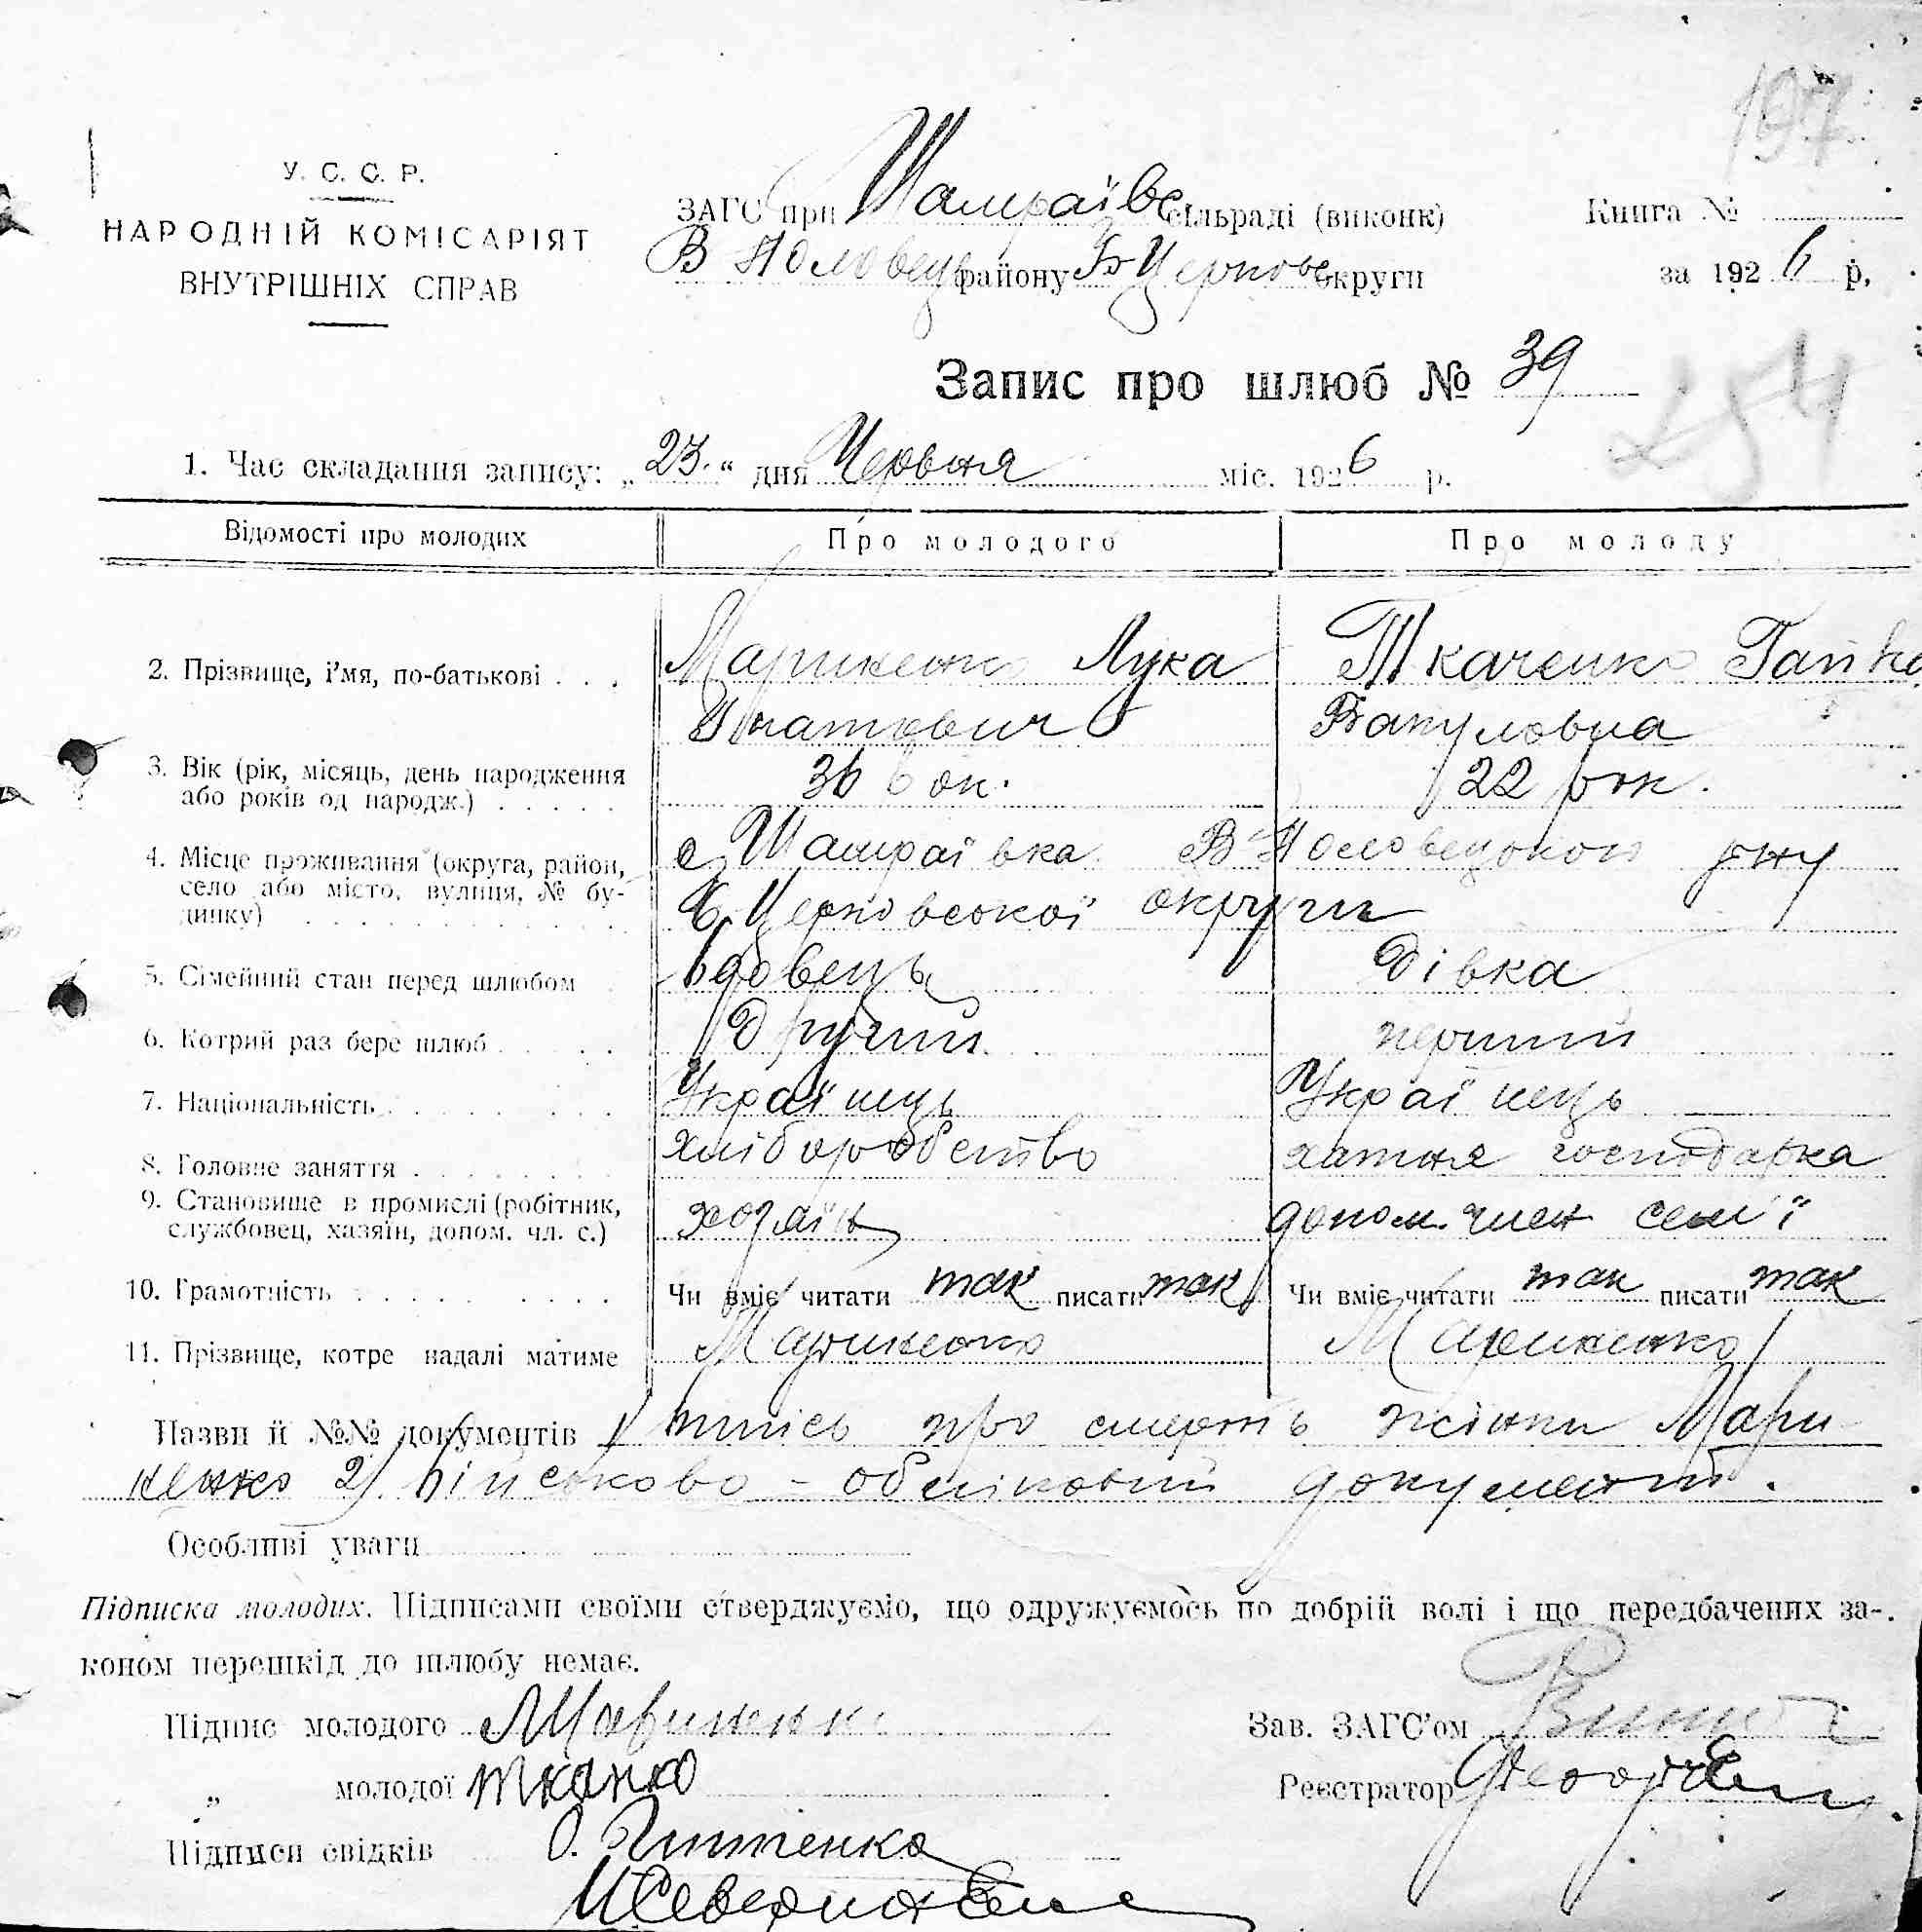 197
У. С. С. Р.
НАРОДНІЙ КОМІСАРІЯТ
ВНУТРІШНІХ СПРАВ
ЗАГС при Шамраївс сільраді (виконк)
Книга №
В Половец району Б Церковс округи
за 1926 р.
Запис про шлюб № 39
254
1. Час складання запису: „23." дня Червня міс. 1926 р.
Відомості про молодих Про молодого Про молоду
2. Прізвище, і'мя, по-батькові . . . Марикенко Лука Ткаченко Ганна
Гнатович Вакуловна
3. Вік (рік, місяць, день народження
або років од народж.) . . . . . 36 рок. 22 рок.
4. Місце проживання (округа, район,
село або місто, вулиця, № бу-
динку) с. Шамраївка В Половецького р-ну
Б. Церковської округи
5. Сімейний стан перед шлюбом вдовець дівка
6. Котрий раз бере шлюб . . . . другий перший
7. Національність . . . . . . Українець Українець
8. Головне заняття . . . . . . хліборобство хатня господарка
9. Становище в промислі (робітник,
службовец, хазяін, допом. чл. с.) хозяїн допом. член сем'ї
10. Грамотність . . . . . . . Чи вміє читати так писати так Чи вміє читати так писати так
11. Прізвище, котре надалі матиме Марикенко Марикенко
Назви й №№ документів 1) випись про смерть жінки Мари-
кенко 2) військово-обліковий документ.
Особливі уваги
Підписка молодих. Підписами своїми стверджуємо, що одружуємось по добрій волі і що передбачених за-
коном перешкід до шлюбу немає.
Підпис молодого
Зав. ЗАГС'ом
„ молодої
Реєстратор
Підписи свідків О.